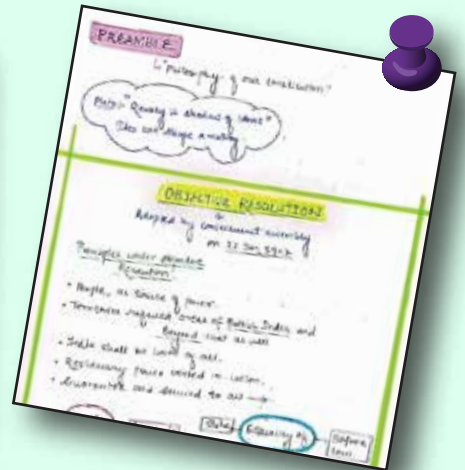 PREAMBLE
"Philosophy of our constitution"
Plato:- "Reality is shadow of ideas"
Idea can shape reality
OBJECTIVE RESOLUTION
Adopted by constituent assembly
on 22 Jan, 1947
Principles under objective
Resolution
• People, as source of power.
• Territories included areas of British India and
Beyond that as well
• India shall be land of all.
• Residuary power vested in union.
• Guarantee and secured to all →
Equality of
before
law